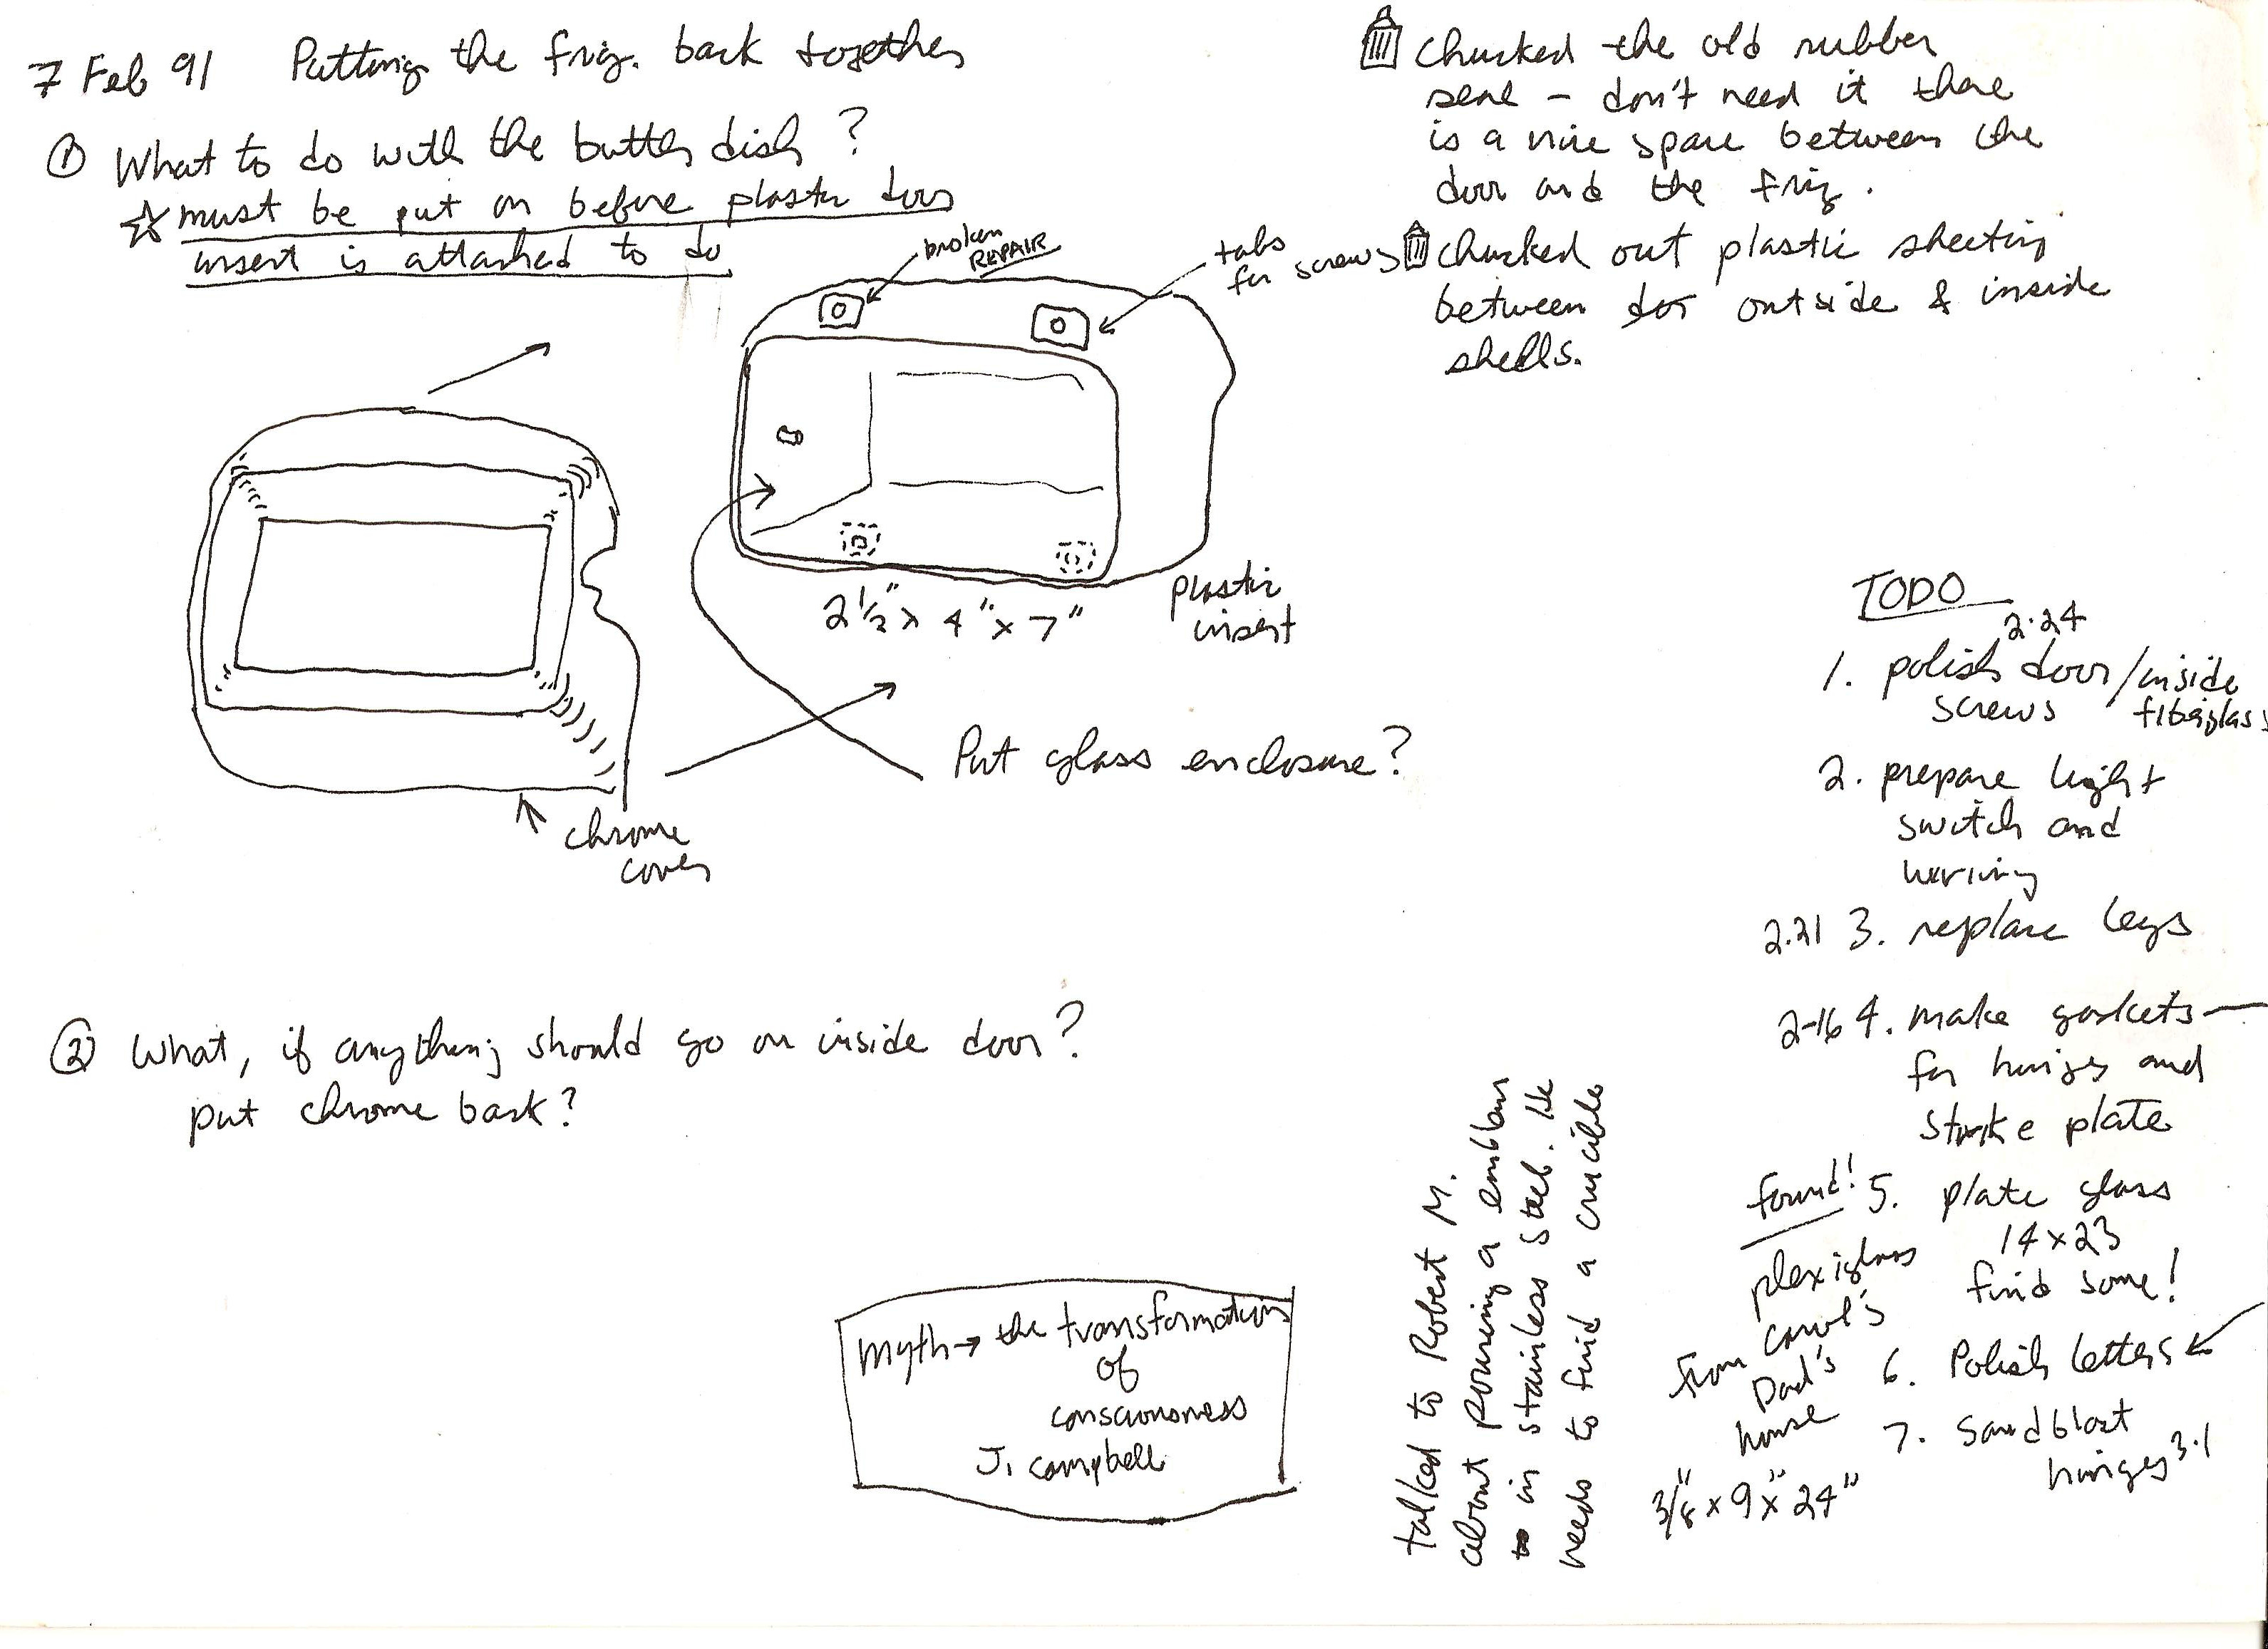 7 Feb 91 Putting the frig. back together
① What to do with the butter dish?
☆ must be put on before plastic door
insert is attached to do
broken
REPAIR
tabs
for screws
2 1/2" x 4" x 7"
plastic
insert
Put glass enclosure?
chrome
cover
② What, if anything should go on inside door?
put chrome back?
Myth → the transformation
of
consciousness
J. Campbell
Chucked the old rubber
seal – don't need it there
is a nice space between the
door and the frig.
Chucked out plastic sheeting
between door outside & inside
shells.
talked to Robert M.
about pouring a emblem
in stainless steel. He
needs to find a crucible
TODO
2.24
1. polish door/inside
screws fiberglass
2. prepare light
switch and
wiring
2.21 3. replace legs
2-16 4. make gaskets—
for hinges and
strike plate
found! 5. plate glass
14 x 23
find some!
plexiglass
from Carol's
Dad's
house
3/8" x 9" x 24"
6. Polish letters
7. Sandblast
hinges 3.1